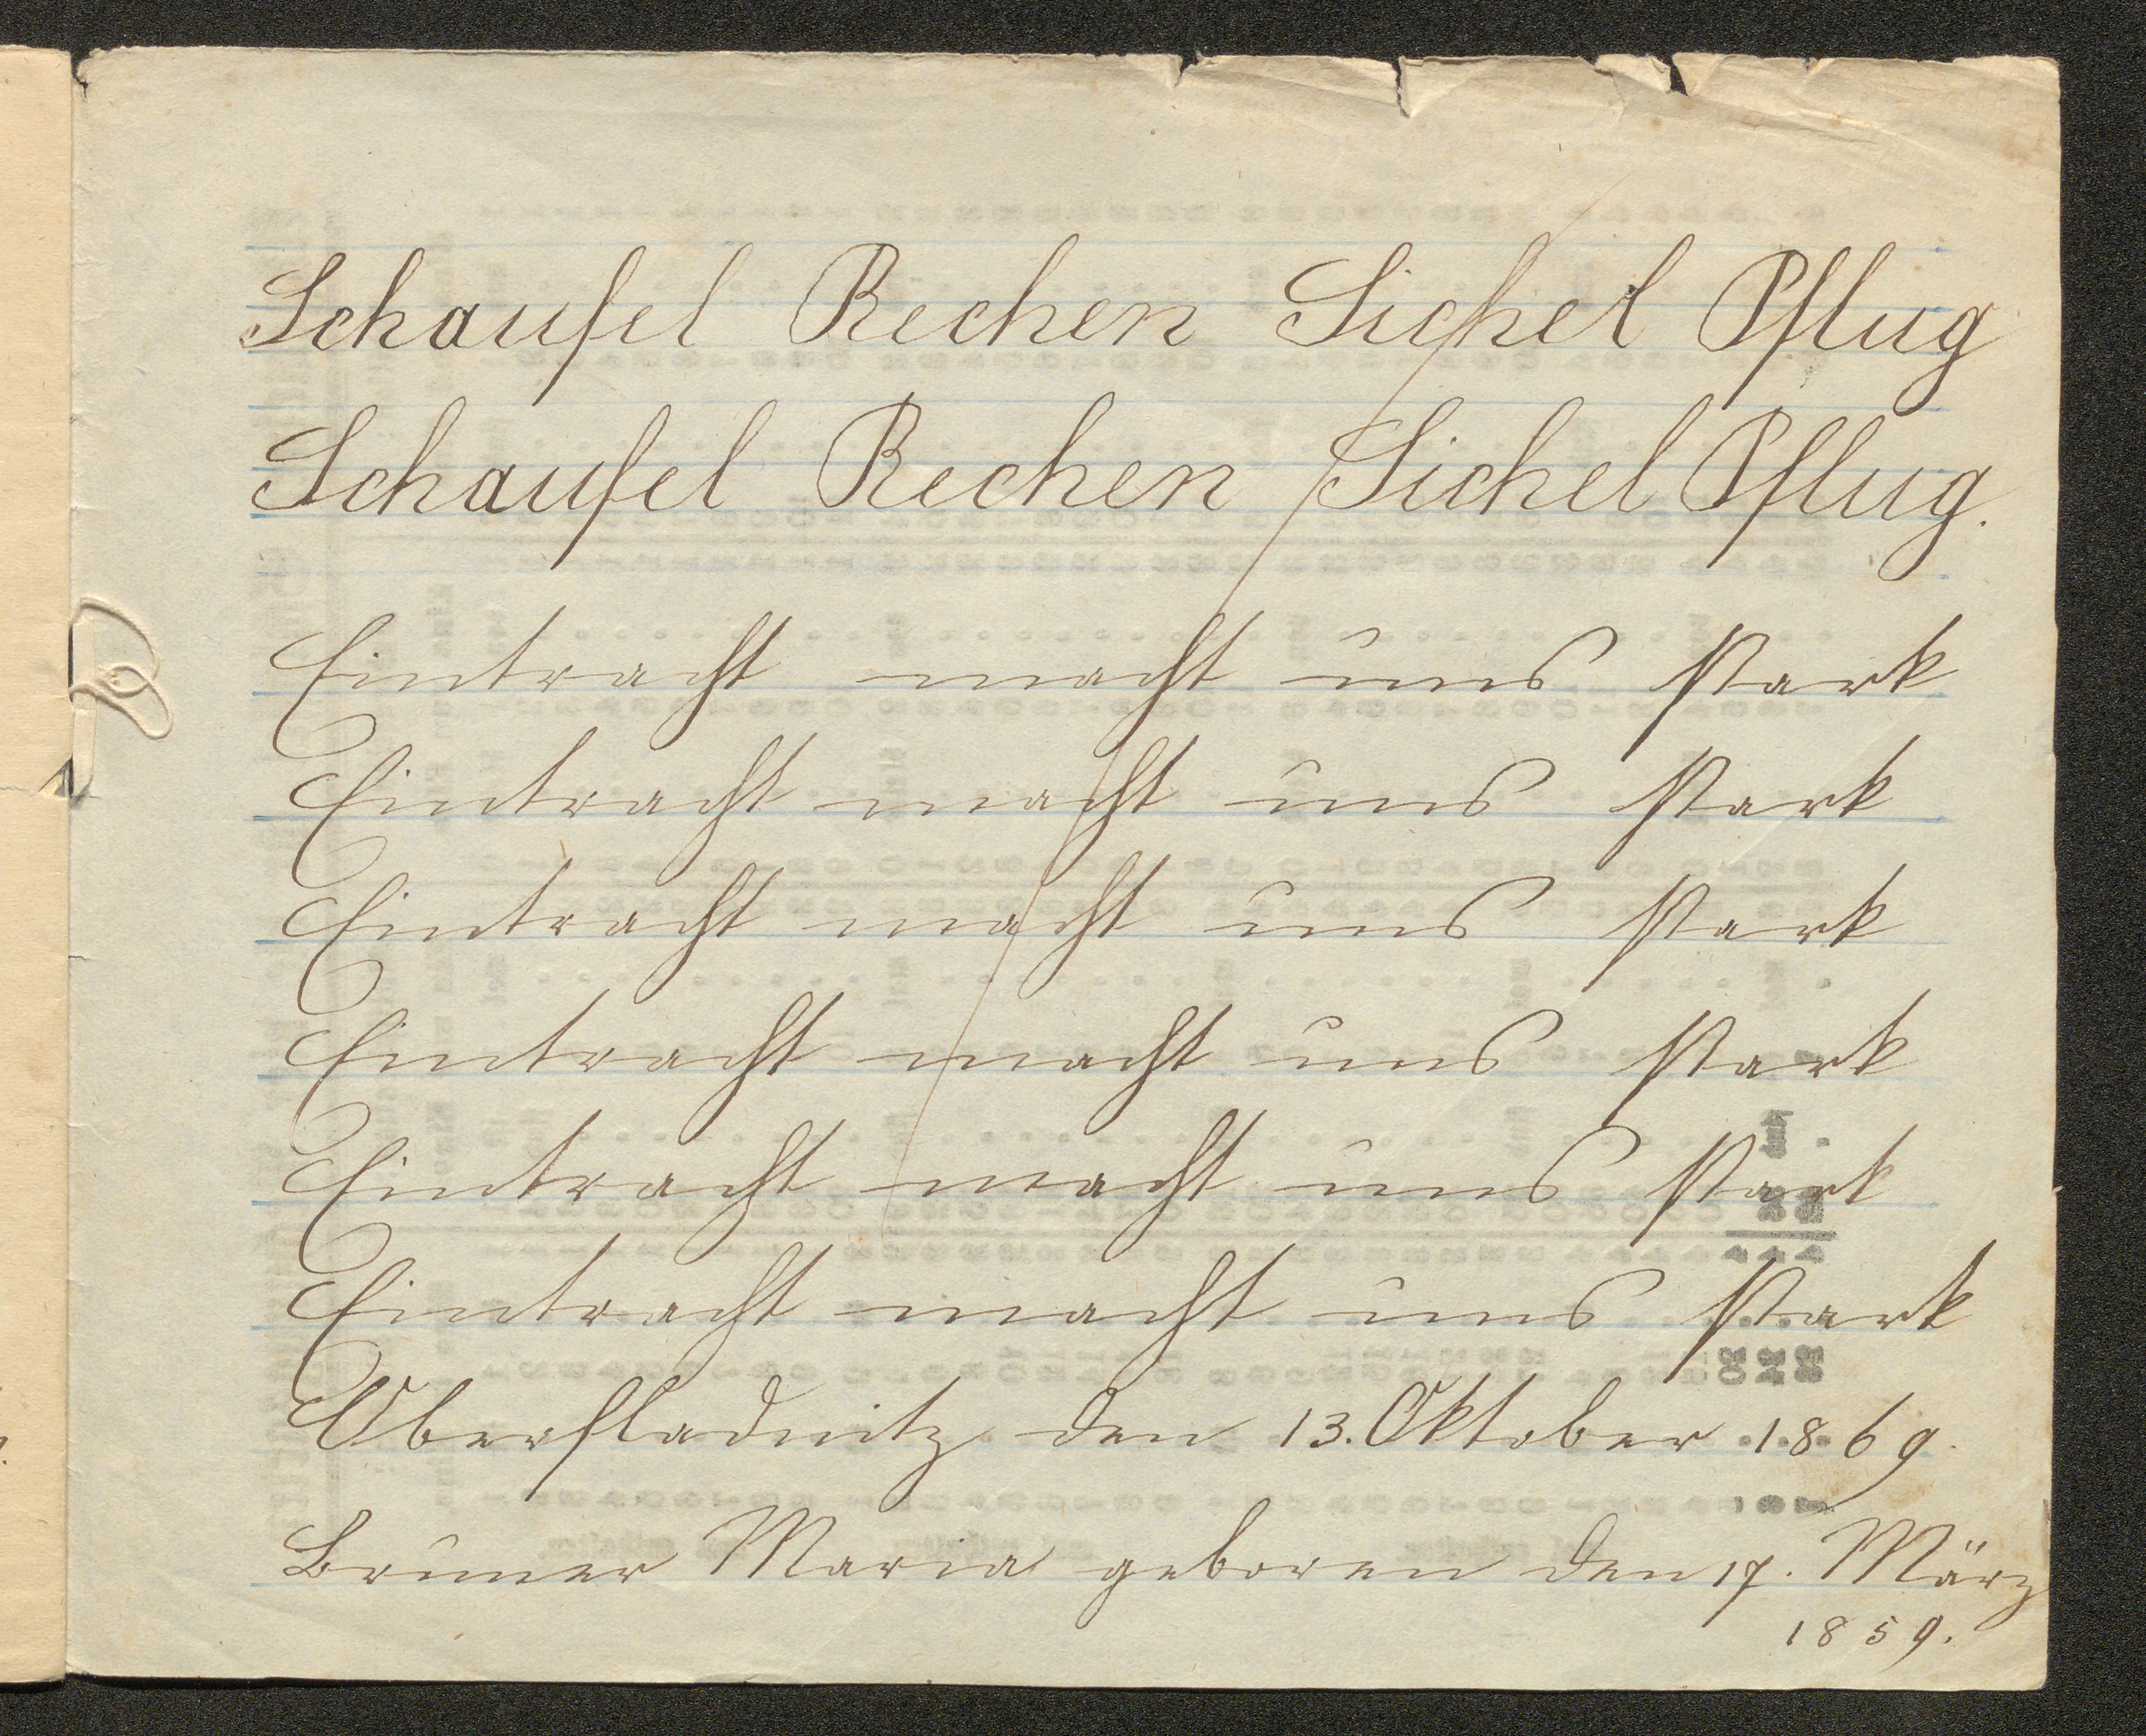 Schaufel Rechen Sichel Pflug
Schaufel Rechen Sichel Pflug.
Eintracht macht uns stark
Eintracht macht uns stark
Eintracht macht uns stark
Eintracht macht uns stark
Eintracht macht uns stark
Eintracht macht uns stark
Oberfladnitz den 13. Oktober 1869.
Bruner Maria geboren den 17. März
1859.